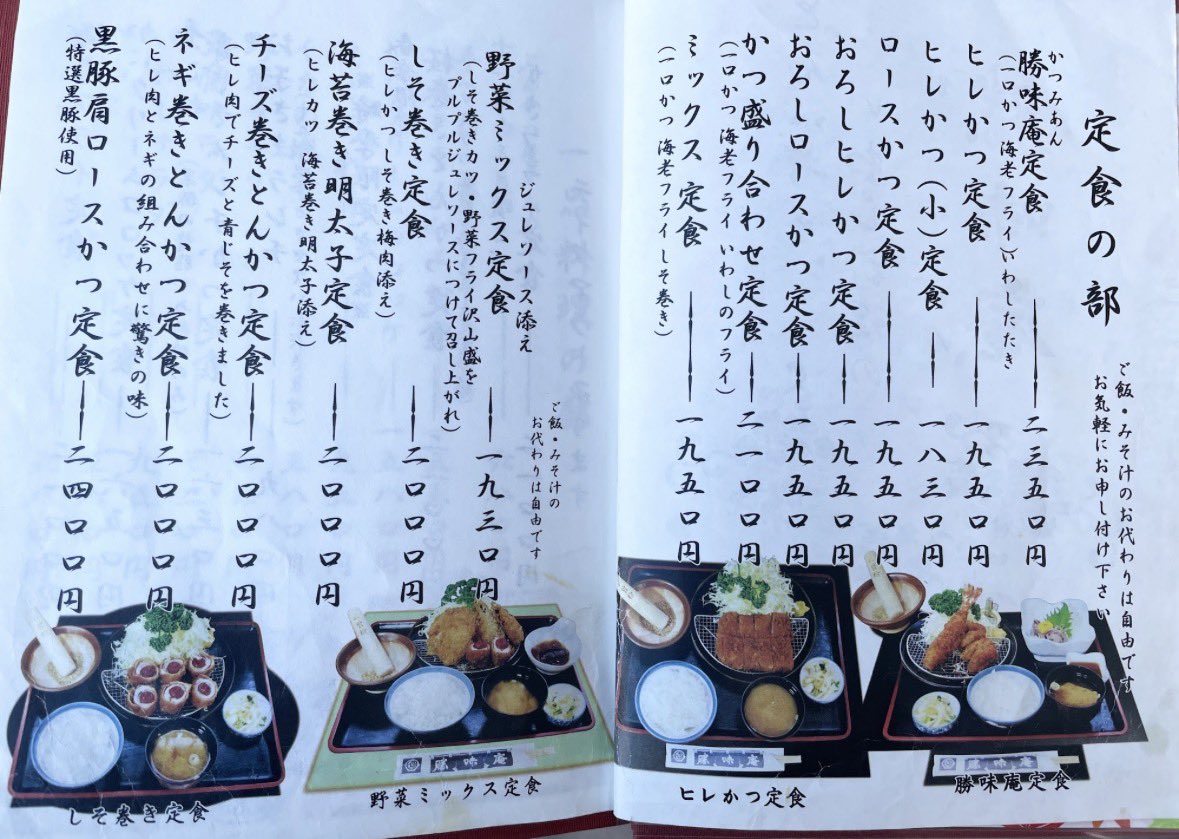 定食の部
ご飯・みそ汁のお代わりは自由です
お気軽にお申し付け下さい
かつみあん
勝味庵定食 二三五〇円
(一口かつ 海老フライ いわしたたき)
ヒレかつ定食 一九五〇円
ヒレかつ(小)定食 一八三〇円
ロースかつ定食 一九五〇円
おろしヒレかつ定食 一九五〇円
おろしロースかつ定食 一九五〇円
かつ盛り合わせ定食 二一〇〇円
(一口かつ 海老フライ いわしのフライ)
ミックス定食 一九五〇円
(一口かつ 海老フライ しそ巻き)
ご飯・みそ汁の
お代わりは自由です
ジュレソース添え
野菜ミックス定食 一九三〇円
(しそ巻きカツ・野菜フライ沢山盛を
プルプルジュレソースにつけて召し上がれ)
しそ巻き定食 二〇〇〇円
(ヒレかつ しそ巻き梅肉添え)
海苔巻き明太子定食 二〇〇〇円
(ヒレカツ 海苔巻き明太子添え)
チーズ巻きとんかつ定食 二〇〇〇円
(ヒレ肉でチーズと青じそを巻きました)
ネギ巻きとんかつ定食 二〇〇〇円
(ヒレ肉とネギの組み合わせに驚きの味)
黒豚肩ロースかつ定食 二四〇〇円
(特選黒豚使用)
勝味庵
勝味庵定食
勝味庵
ヒレかつ定食
勝味庵
野菜ミックス定食
しそ巻き定食